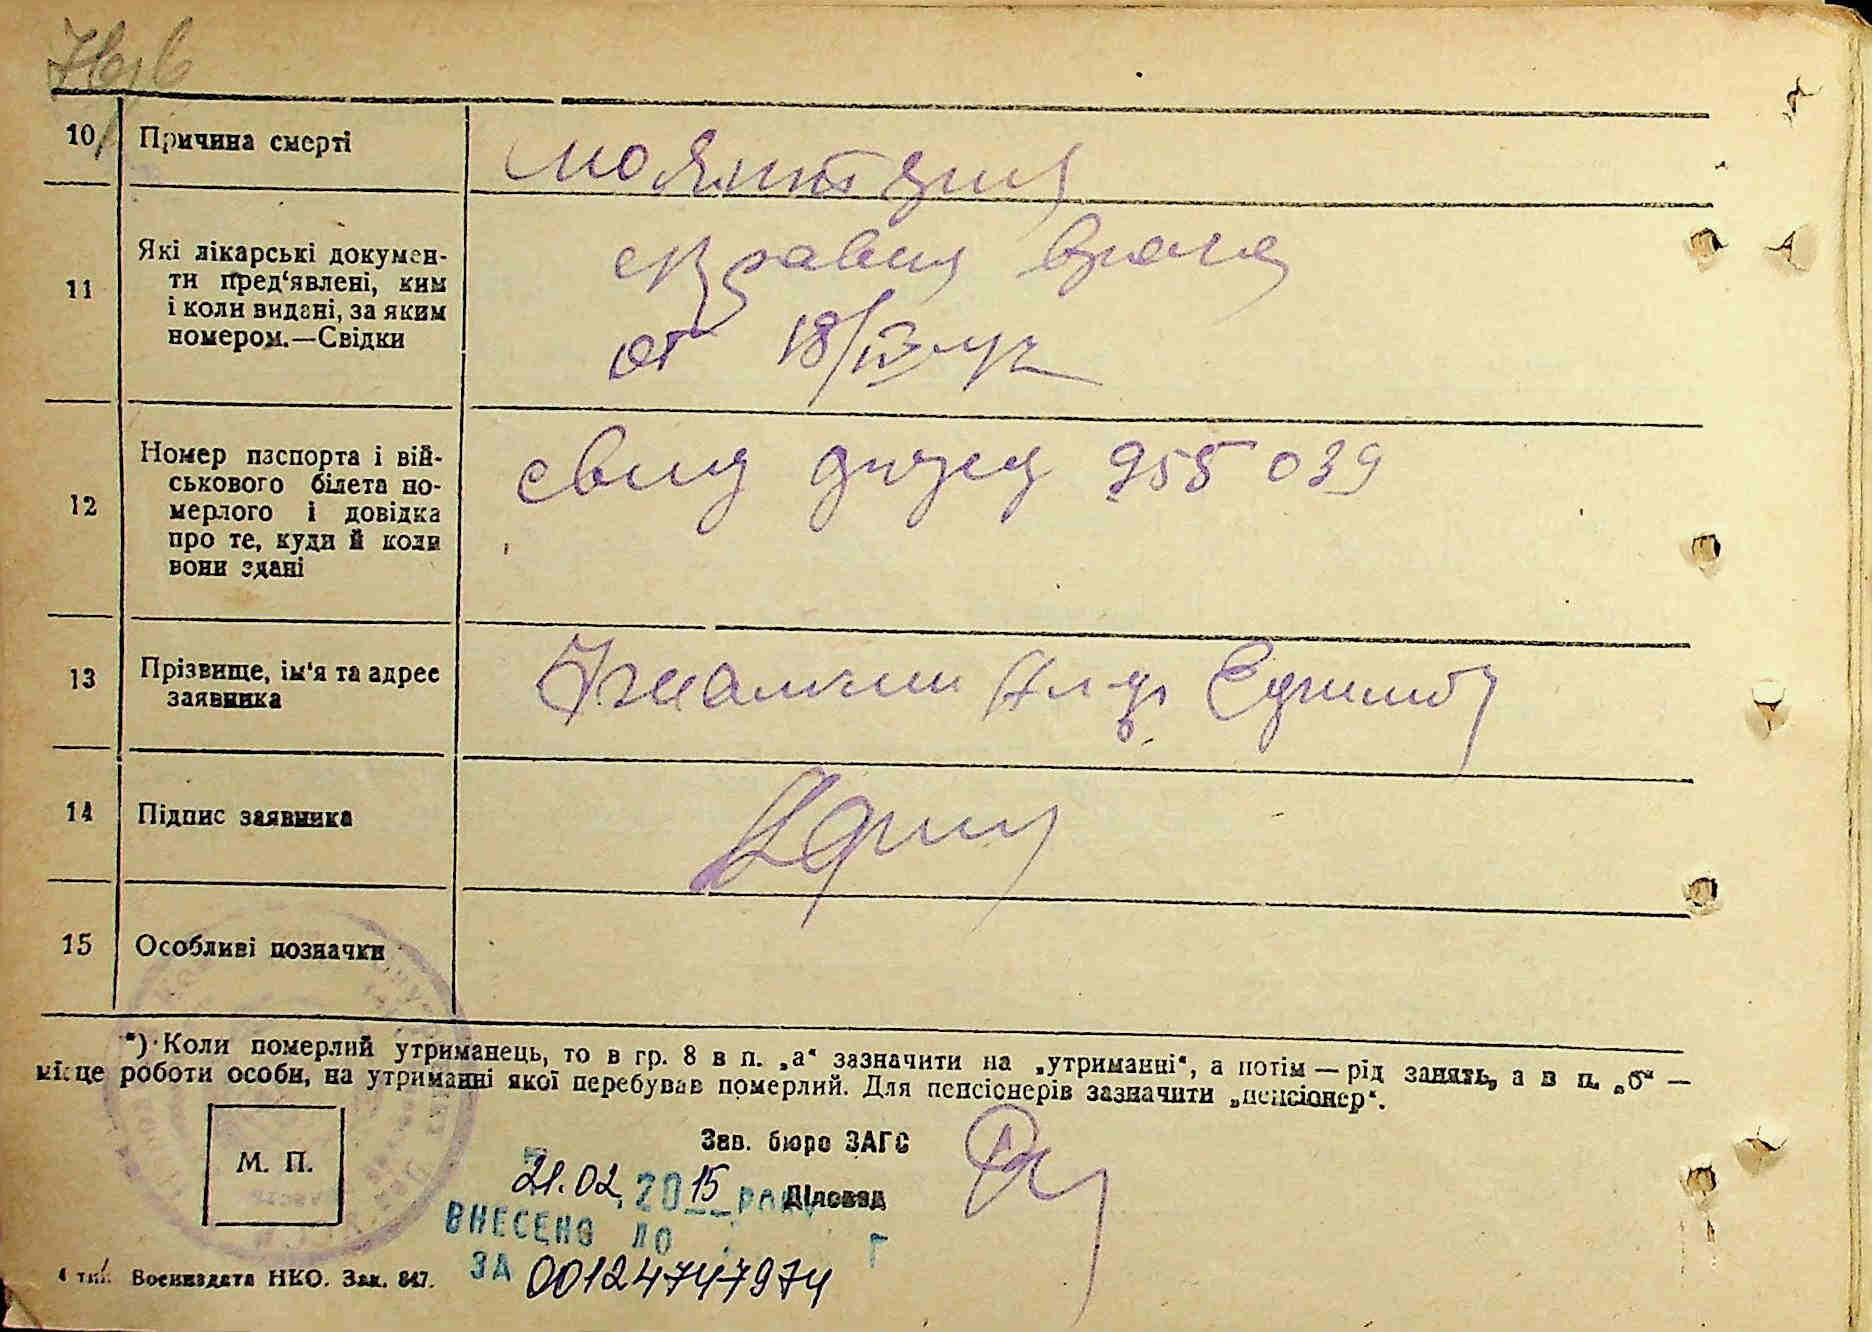 10
Причина смерті
11
Які лікарські докумен-
ти пред'явлені, ким
і коли видані, за яким
номером.—Свідки
справка врача
от 18/IV
12
Номер паспорта і вій-
ськового білета по-
мерлого і довідка
про те, куди й коли
вони здані
955039
13
Прізвище, ім'я та адрес
заявника
14
Підпис заявника
15
Особливі позначки
*) Коли померлий утриманець, то в гр. 8 в п. „а“ зазначити на „утриманні“, а потім — рід занять, а в п. „б“ —
місце роботи особи, на утриманні якої перебував померлий. Для пенсіонерів зазначити „пенсіонер“.
М. П.
Зав. бюро ЗАГС
21.02.2015 року
Діловод
ВНЕСЕНО ДО
ЗА 00124747974
4 тип. Воениздата НКО. Зак. 847.